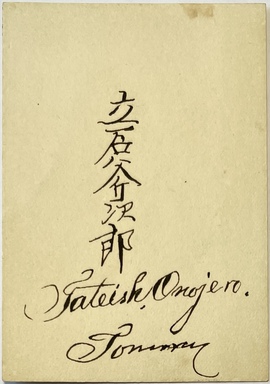 立石斧次郎
Tateish, Onojero.
Tommy